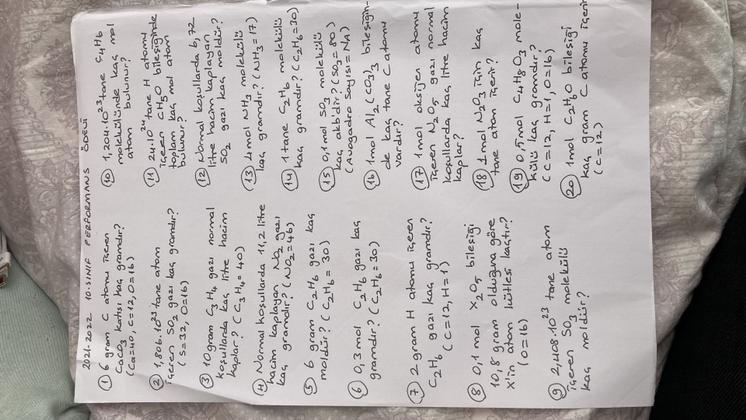 2021-2022 10.SINIF PERFORMANS ÖDEVİ
① 6 gram C atomu içeren
CaCO3 katısı kaç gramdır?
(Ca=40, C=12, O=16)
② 1,806.10^23 tane atom
içeren SO2 gazı kaç gramdır?
(S=32, O=16)
③ 10 gram C3H4 gazı normal
koşullarda kaç litre hacim
kaplar? (C3H4=40)
④ Normal koşullarda 11,2 litre
hacim kaplayan NO2 gazı
kaç gramdır? (NO2=46)
⑤ 6 gram C2H6 gazı kaç
moldür? (C2H6=30)
⑥ 0,3 mol C2H6 gazı kaç
gramdır? (C2H6=30)
⑦ 2 gram H atomu içeren
C2H6 gazı kaç gramdır?
(C=12, H=1)
⑧ 0,1 mol X2O5 bileşiği
10,8 gram olduğuna göre
X'in atom kütlesi kaçtır?
(O=16)
⑨ 2,408.10^23 tane atom
içeren SO3 molekülü
kaç moldür?
⑩ 1,204.10^23 tane C4H6
molekülünde kaç mol
atom bulunur?
⑪ 24.10^24 tane H atomu
içeren CH4O bileşiğinde
toplam kaç mol atom
bulunur?
⑫ Normal koşullarda 6,72
litre hacim kaplayan
SO2 gazı kaç moldür?
⑬ 4 mol NH3 molekülü
kaç gramdır? (NH3=17)
⑭ 1 tane C2H6 molekülü
kaç gramdır? (C2H6=30)
⑮ 0,1 mol SO3 molekülü
kaç akb'dir? (SO3=80)
(Avogadro Sayısı=NA)
⑯ 1 mol Al2(CO3)3 bileşiğin-
de kaç tane C atomu
vardır?
⑰ 1 mol oksijen atomu
içeren N2O5 gazı normal
koşullarda kaç litre hacim
kaplar?
⑱ 1 mol N2O3 için kaç
tane atom içerir?
⑲ 0,5 mol C4H8O3 mole-
külü kaç gramdır?
(C=12, H=1, O=16)
⑳ 1 mol C2H6O bileşiği
kaç gram C atomu içerir
(C=12)